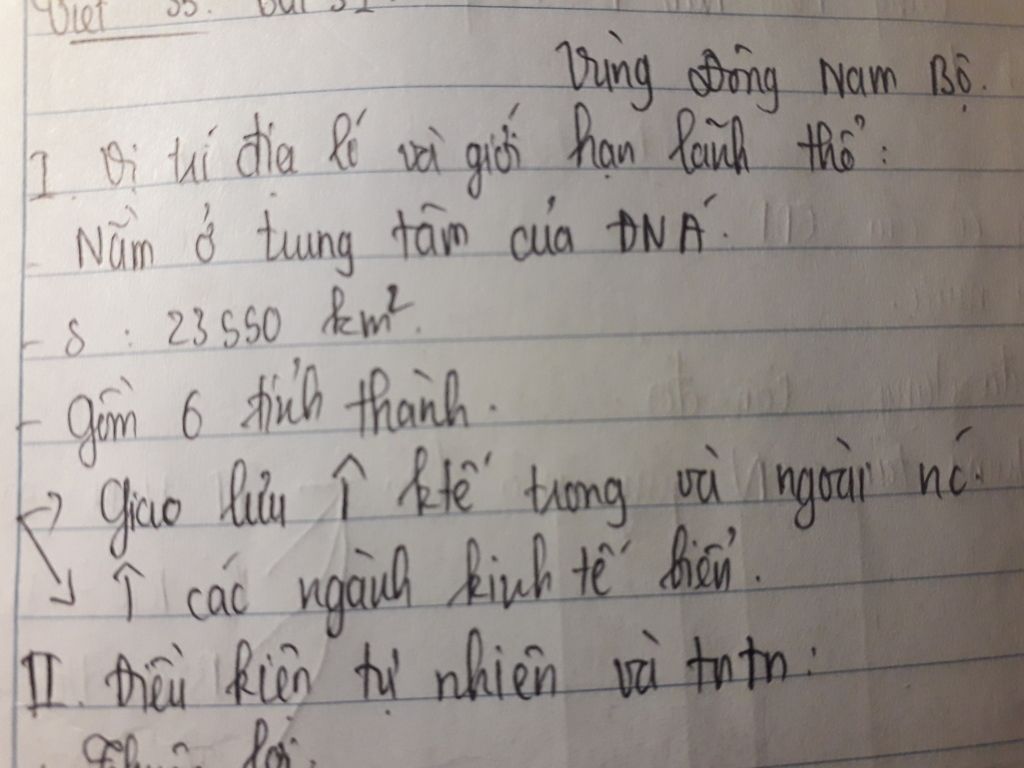 Việt
Vùng Đông Nam Bộ.
I. Vị trí địa lí và giới hạn lãnh thổ:
- Nằm ở trung tâm của ĐNÁ.
- S : 23 550 km².
- Gồm 6 tỉnh thành.
→ Giao lưu ↑ ktế trong và ngoài nc.
↘ ↑ các ngành kinh tế biển.
II. Điều kiện tự nhiên và tntn:
lợi: